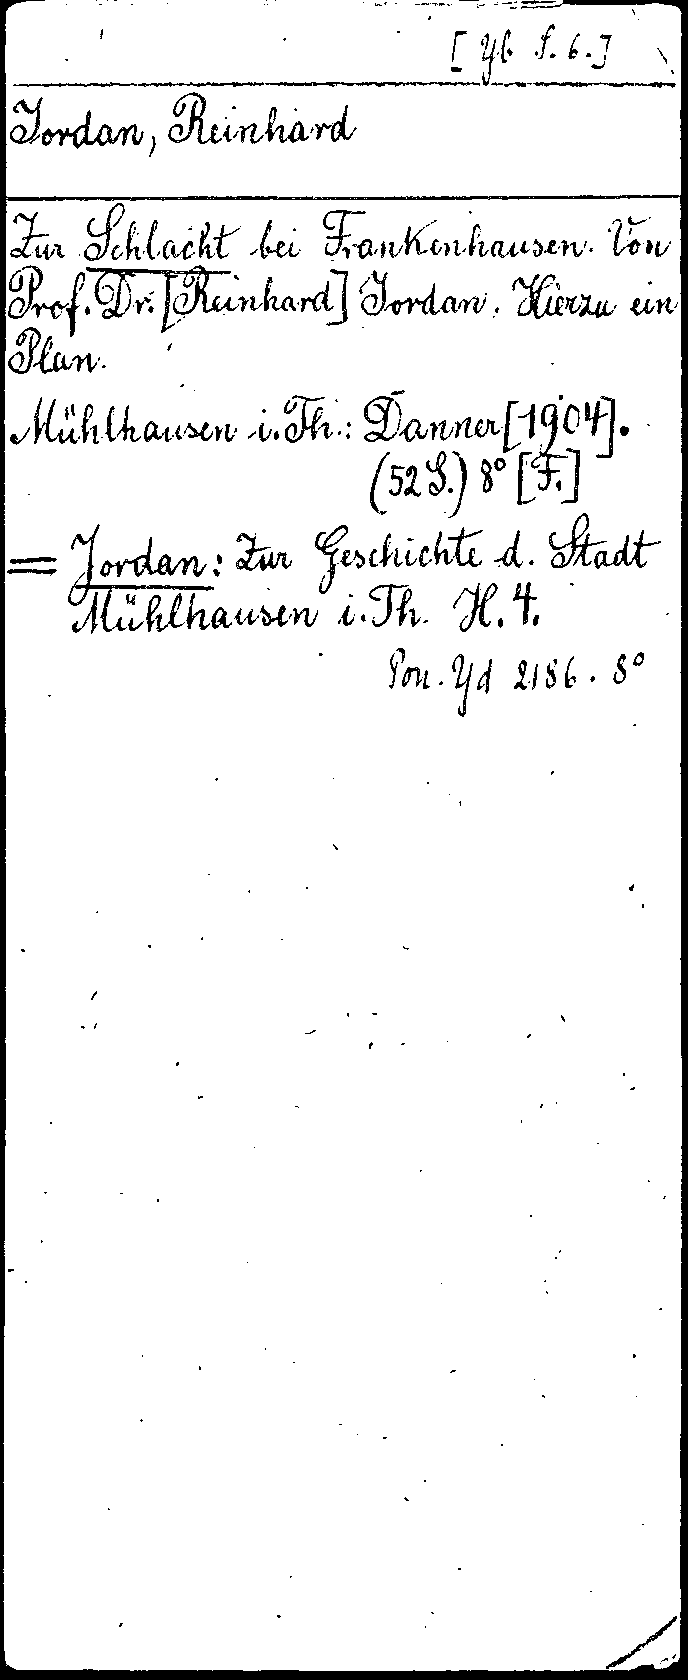 [Yb S. 6.]
Jordan, Reinhard
Zur Schlacht bei Frankenhausen. Von
Prof. Dr. [Reinhard] Jordan. Hierzu ein
Plan.
Mühlhausen i. Th.: Danner [1904].
(52 S.) 8° [F.]
= Jordan: Zur Geschichte d. Stadt
Mühlhausen i. Th. H. 4.
Pon. Yd 2186. 8°